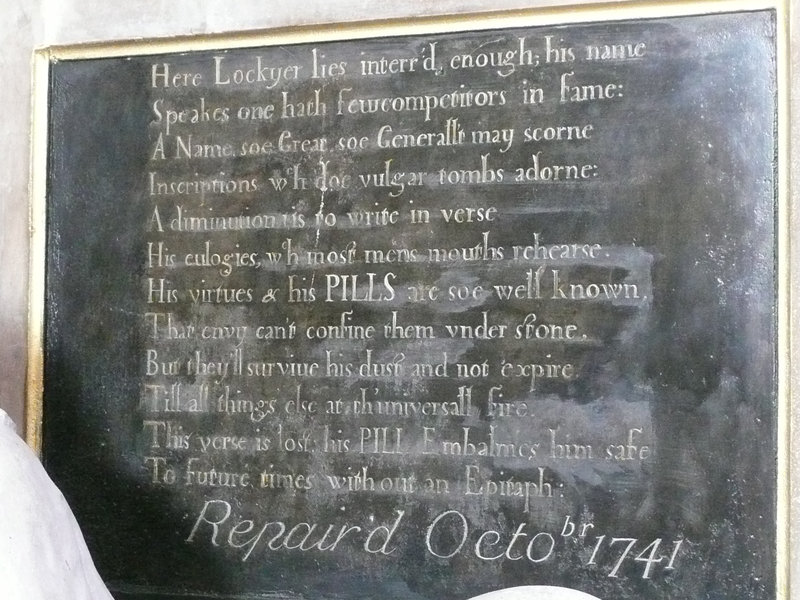 Here Lockyer lies interr'd, enough; his name
Speakes one hath few competitors in fame:
A Name, soe Great, soe Generall't may scorne
Inscriptions wch doe vulgar tombs adorne:
A diminution 'tis to write in verse
His eulogies, wch most mens mouths rehearse.
His virtues & his PILLS are soe well known,
That envy can't confine them vnder stone.
But they'll surviue his dust and not expire
Till all things else at th'universall fire.
This verse is lost, his PILL Embalmes him safe
To future times without an Epitaph:
Repair'd Octobr 1741